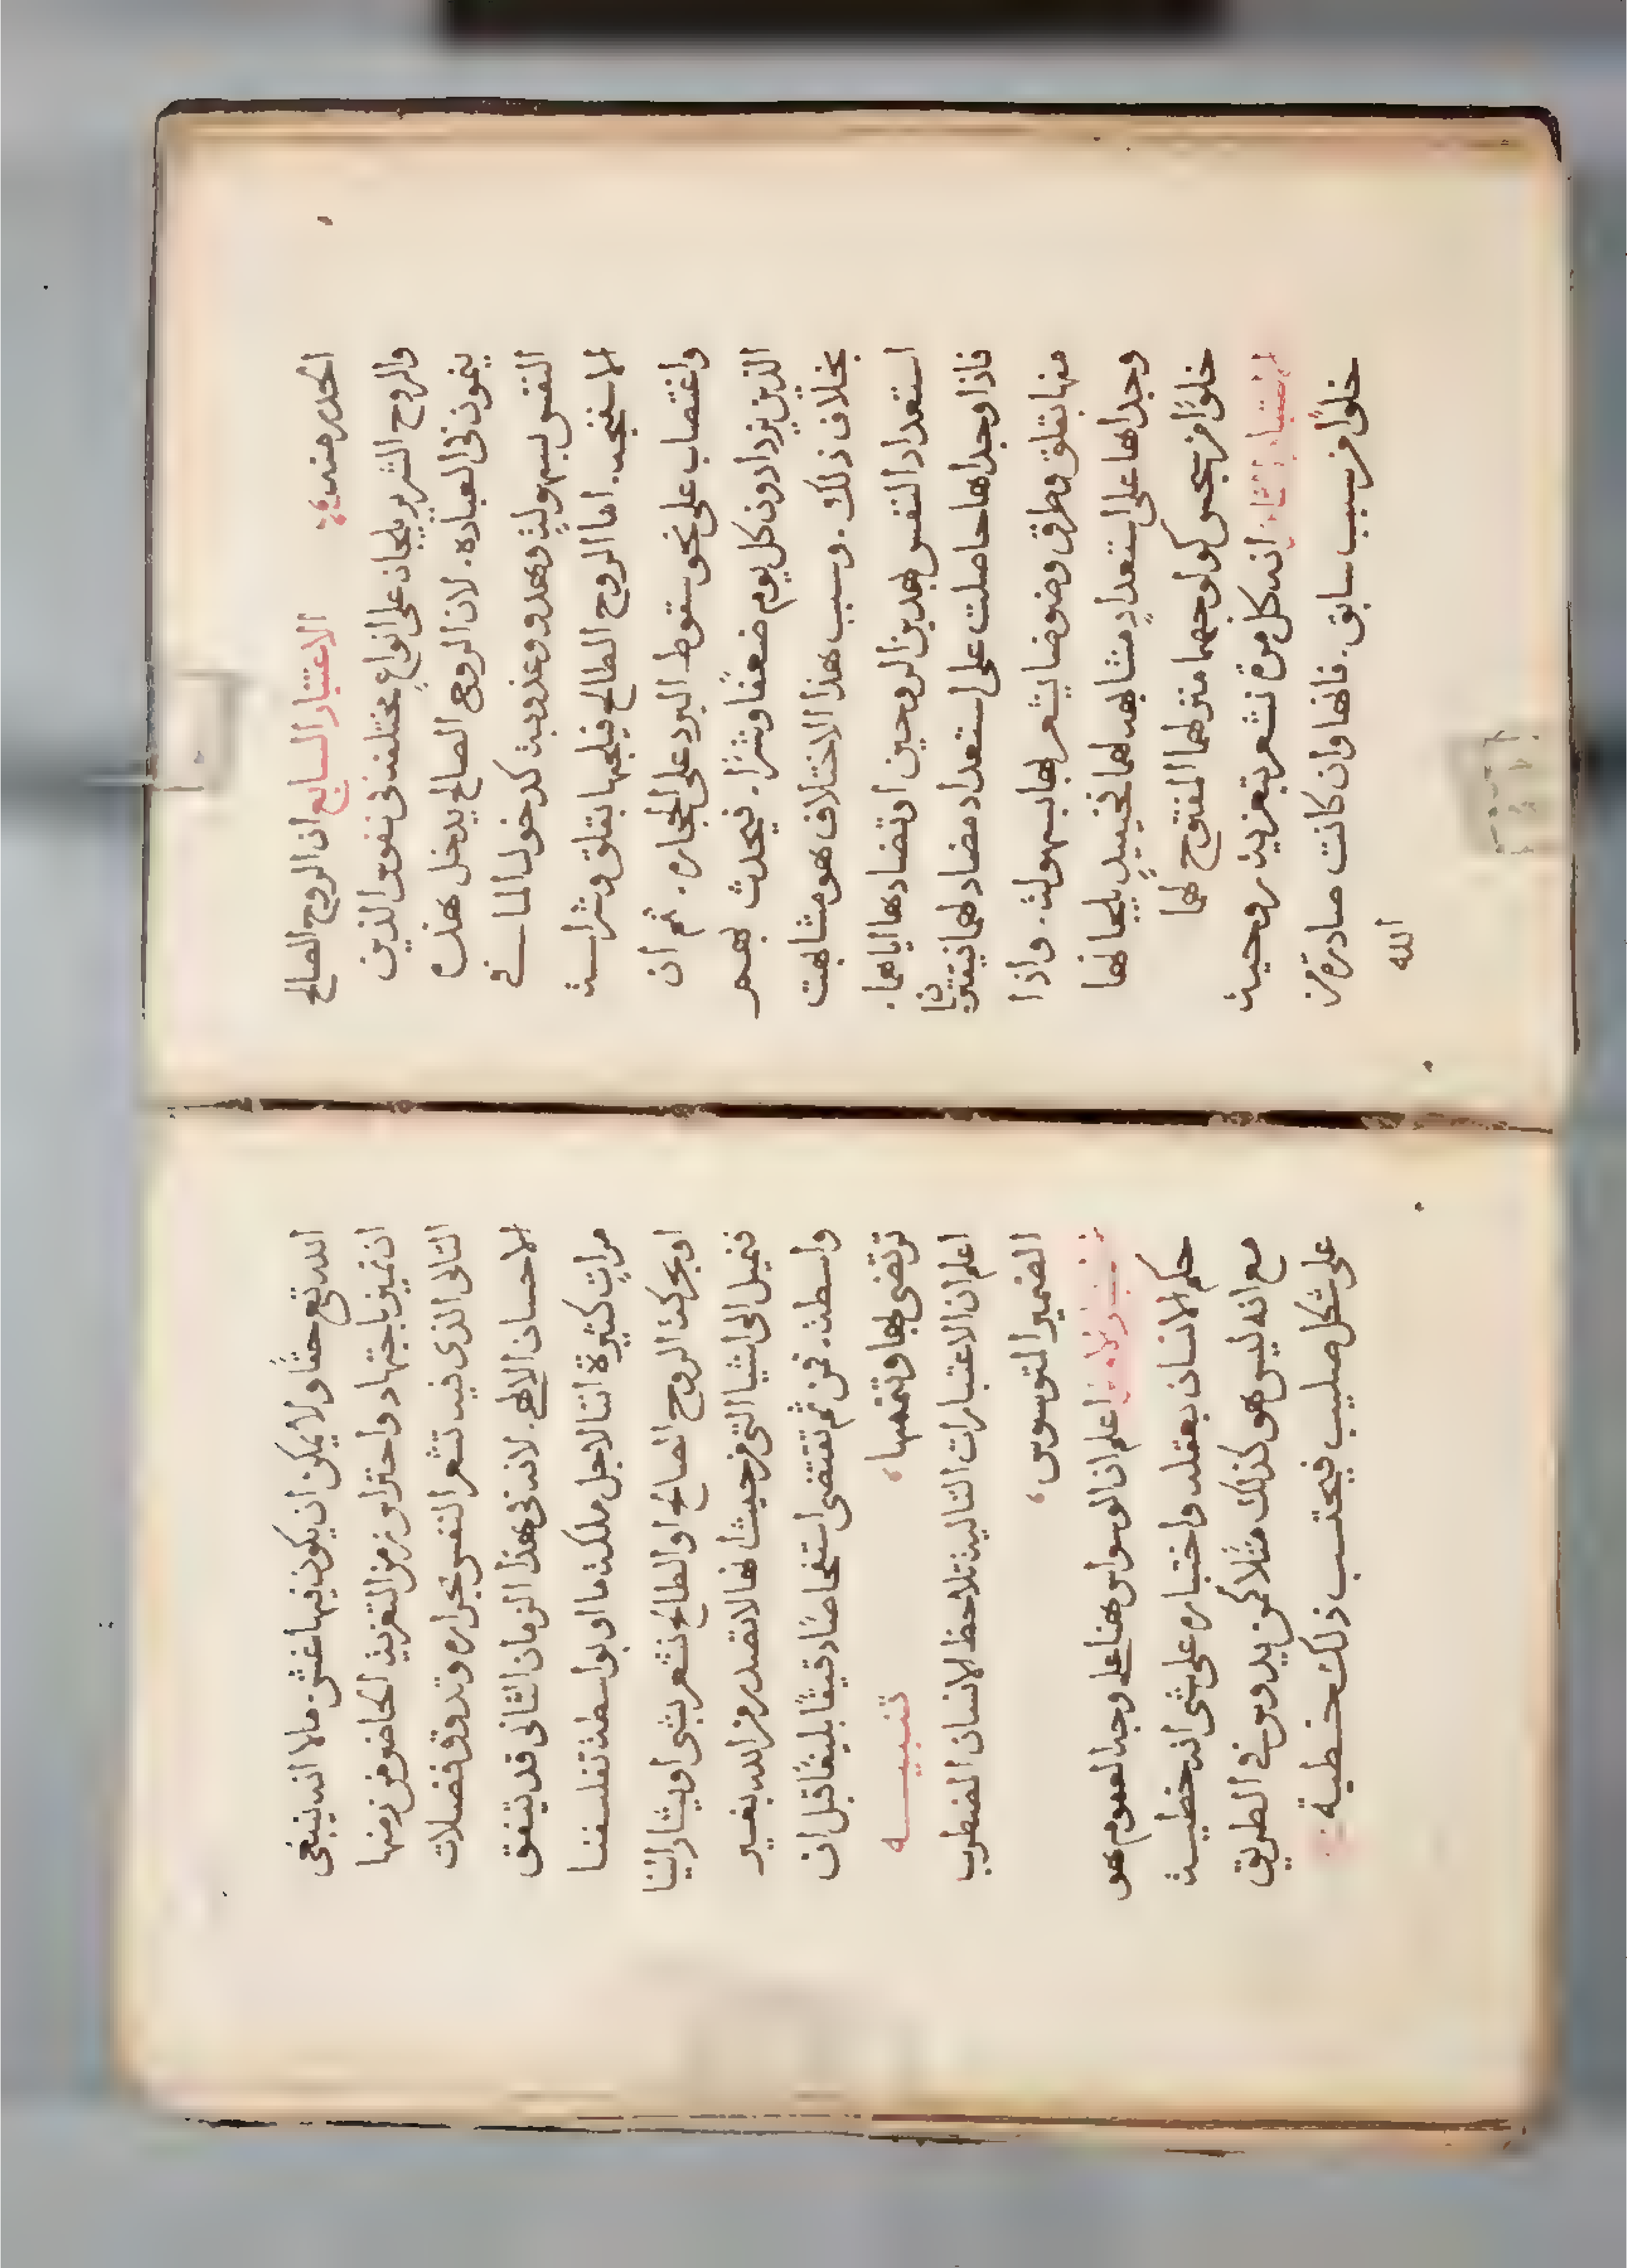 الحدر منه ⁘ الاعتبار السابع ان الروح الصالح
والروح الشرير يلجان على انواعٍ مختلفة في نفوس الذين
ينمون في العباده. لان الروح الصالح يدخل هذه
النفس بسهولةٍ وهدوو وعذوبة كدخول الما في
الاسفنجه. اما الروح الطالح فيلجها بقلق وشراسة
واغتصاب على نحو سقوط البرد على الحجاره. ثم ان
الذين يزدادون كل يوم ضعفًا وشرًا. فيحدث بهم
بخلاف ذلك. وسبب هذا الاختلاف هو مشابهت
استعداد النفس لهدين الروحين او تضادها اياهما.
فاذا وجداها حاصلت على استعداد مضاد لهما
منها بقلق وطرق وضوضا يشعر بها بسهولة. واذا
وجداها على استعدادٍ مشابهه لهما فحينيدٍ يلجانها
خلوًا من سجس كولوجهما منزلهما المفتوح لهما
الاعتبار الثامن انه كل مرة تشعر بتعزية روحية
خلوًا من سبب سابق. فانها وان كانت صادرة من
الله
الله تع حقًا ولا يمكن ان يكون فيها غش ما الا انه ينبغى
ان نميز باجتهاد واحتراس زمن التعزية الحاضر من زمنها
التالى الذى فيه تشعر النفس بحراره وتدوق فضلات
الاحسان الالهي. لانه في هذا الزمان الثانى قد يتفق
مراتٍ كثيرة اننا لاجل ملكة ما او بواسطة تفلسفنا
او بحركة الروح الصالح او الطالح نشعر بشى او يشار الينا
فنميل الى اشيا التى من حيث انها لا تصدر من الله بغير
واسطة. فمن ثم تقتضى استفحاصًا دقيقًا بليغًا قبل ان
نرتضى بها ونتممها،
تنبيه
اعلم ان الاعتبارات التالية تلاحظ الانسان المضطرب
الضمير المتوسوس،
الاعتبار الاول اعلم ان الوسواس هنا على وجه العموم هو
حكم الانسان بعقله واختياره على شى انه خطية
مع انه ليس هو كذلك مثلًا كمن يدوس في الطريق
على شكل صليب فيحتسب ذلك خطية